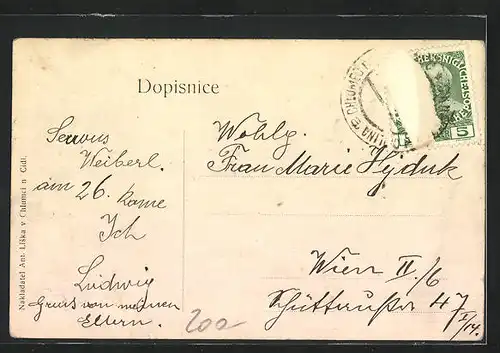 Dopisnice
Servus
Weiberl.
am 26. kome
Ich
Ludwig
Gruss von meinen
Eltern.
200
Wohlg.
Frau Marie Hyduk
Wien II/6
47
I/14.
5
Nakladatel Ant. Liška v Chlumci n Cidl.